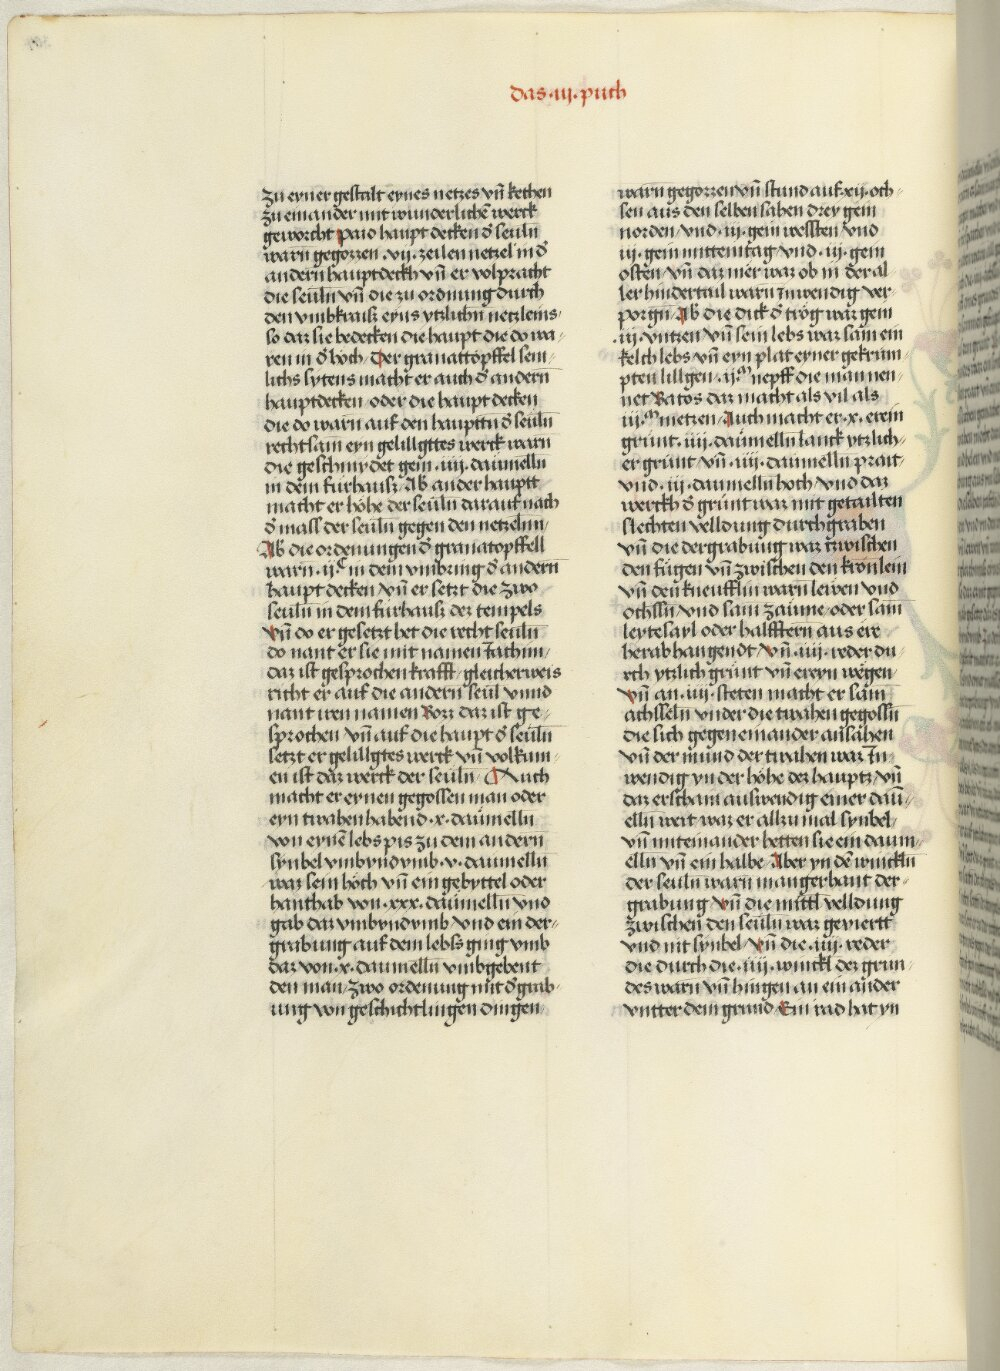 das ·iij· puch
zu eyner gestalt eynes netzes vn̄ kethen
zu einander mit wunderlichē werck
geworcht paid haupt decken d̓ seuln
warn gegozzen ·vij· zeilen netzel in d̓
andern hauptdeckh vn̄ er volpracht
die seuln vn̄ die zu ordnung durch
den vmbkraisz eyns ytzlichn netzleins·
so daz sie bedecken die haupt die do wa-
ren in d̓ hoch· Der granattopffel sem-
lichs sytens macht er auch d̓ andern
hauptdecken· oder die haupt decken
die do warn auf den haupttn d̓ seuln
recht sam eyn gelillgttes werck warn
die geschmydet gein ·iiij· daümelln
in dem fürhausz· Ab ander hauptt
macht er höhe der seuln darauf nach
d̓ mass der seuln gegen den netzeln·
Ab die ordenungen d̓ granatopffell
warn ·ijᶜ in dem vmbring d̓ andern
haupt decken vn̄ er setzt die zwo
seuln in dem fürhausz dez tempels
vn̄ do er gesetzt het die recht seuln
do nant er sie mit namen Jachim·
daz ist gesprochen krafft· gleicherweis
richt er auf die andern seul vnnd
nant iren namen Bozz daz ist ge-
sprochen vn̄ auf die haupt d̓ seuln
setzt er gelillgtes werck vn̄ volkum-
en ist daz werck der seuln· Auch
macht er eynen gegossen man oder
eyn twahen habend ·x· daümelln
von eynē lebs pis zu dem andern
synbel vmbyndvmb ·v· daumelln
waz sein höch vn̄ ein gebyttel oder
hanthab von ·xxx· daümelln vnd
gab daz vmbyndvmb vnd ein der-
grabung auf dem lebss ging vmb
daz von ·x· daumelln vmbgebent
den man· zwo ordenung mit d̓ grab-
ung von geschichtlingen dingen·
warn gegozzen vn̄ stund auf ·xij· och-
sen aus den selben sahen drey gein
norden vnd ·iij· gein wessten vnd
iij· gein mittemtag vnd ·iij· gein
osten vn̄ daz mer waz ob in der al-
ler hindertail warn inwendig ver-
porgn· Ab die dick d̓ trög waz gein
·iij· vntzen vn̄ sein lebs waz sam ein
kelch lebs vn̄ eyn plat eyner gekrüm-
pten lillgen ·ijᵐ nepff die man nen-
net Batos daz macht als vil als
iijᵐ metzen· Auch macht er ·x· erein
grünt ·iiij· daümelln lanck ytzlich-
er grünt vn̄ ·iiij· daumelln prait·
vnd ·iij· daumelln hoch vnd daz
werckh d̓ grünt waz mit getailten
slechten velldung durchgraben
vn̄ die dergrabung waz zwischen
den fügen vn̄ zwischen den krönlein
vn̄ den kneufflin warn lewen vnd
othssn vnd sam zaume oder sam
leytesayl oder halfftern aus ere
herab hangendt· vn̄ ·iiij· reder du-
rch ytzlich grünt vn̄ ereyn wegen·
vn̄ an ·iiij· steten macht er sam
achsseln vnder die twahen gegossn
die sich gegen einander ansahen
vn̄ der mund der twahen waz In-
wendig yn der höhe dez hauptz vn̄
daz erschain auswendig einer daü-
elln wert waz er allzumal synbel·
vn̄ miteinander hetten sie ein daum-
elln vn̄ ein halbe· Aber yn dē wincklu
der seuln warn mangerhant der-
grabung vn̄ die mittl velldung
zwischen den seuln waz geviertt
vnd nit synbel· vn̄ die ·iiij· reder
die durch die ·iiij· winckl dez grun-
des warn vn̄ hingen an ein ander
vntter dem grund· Ein rad hat yn